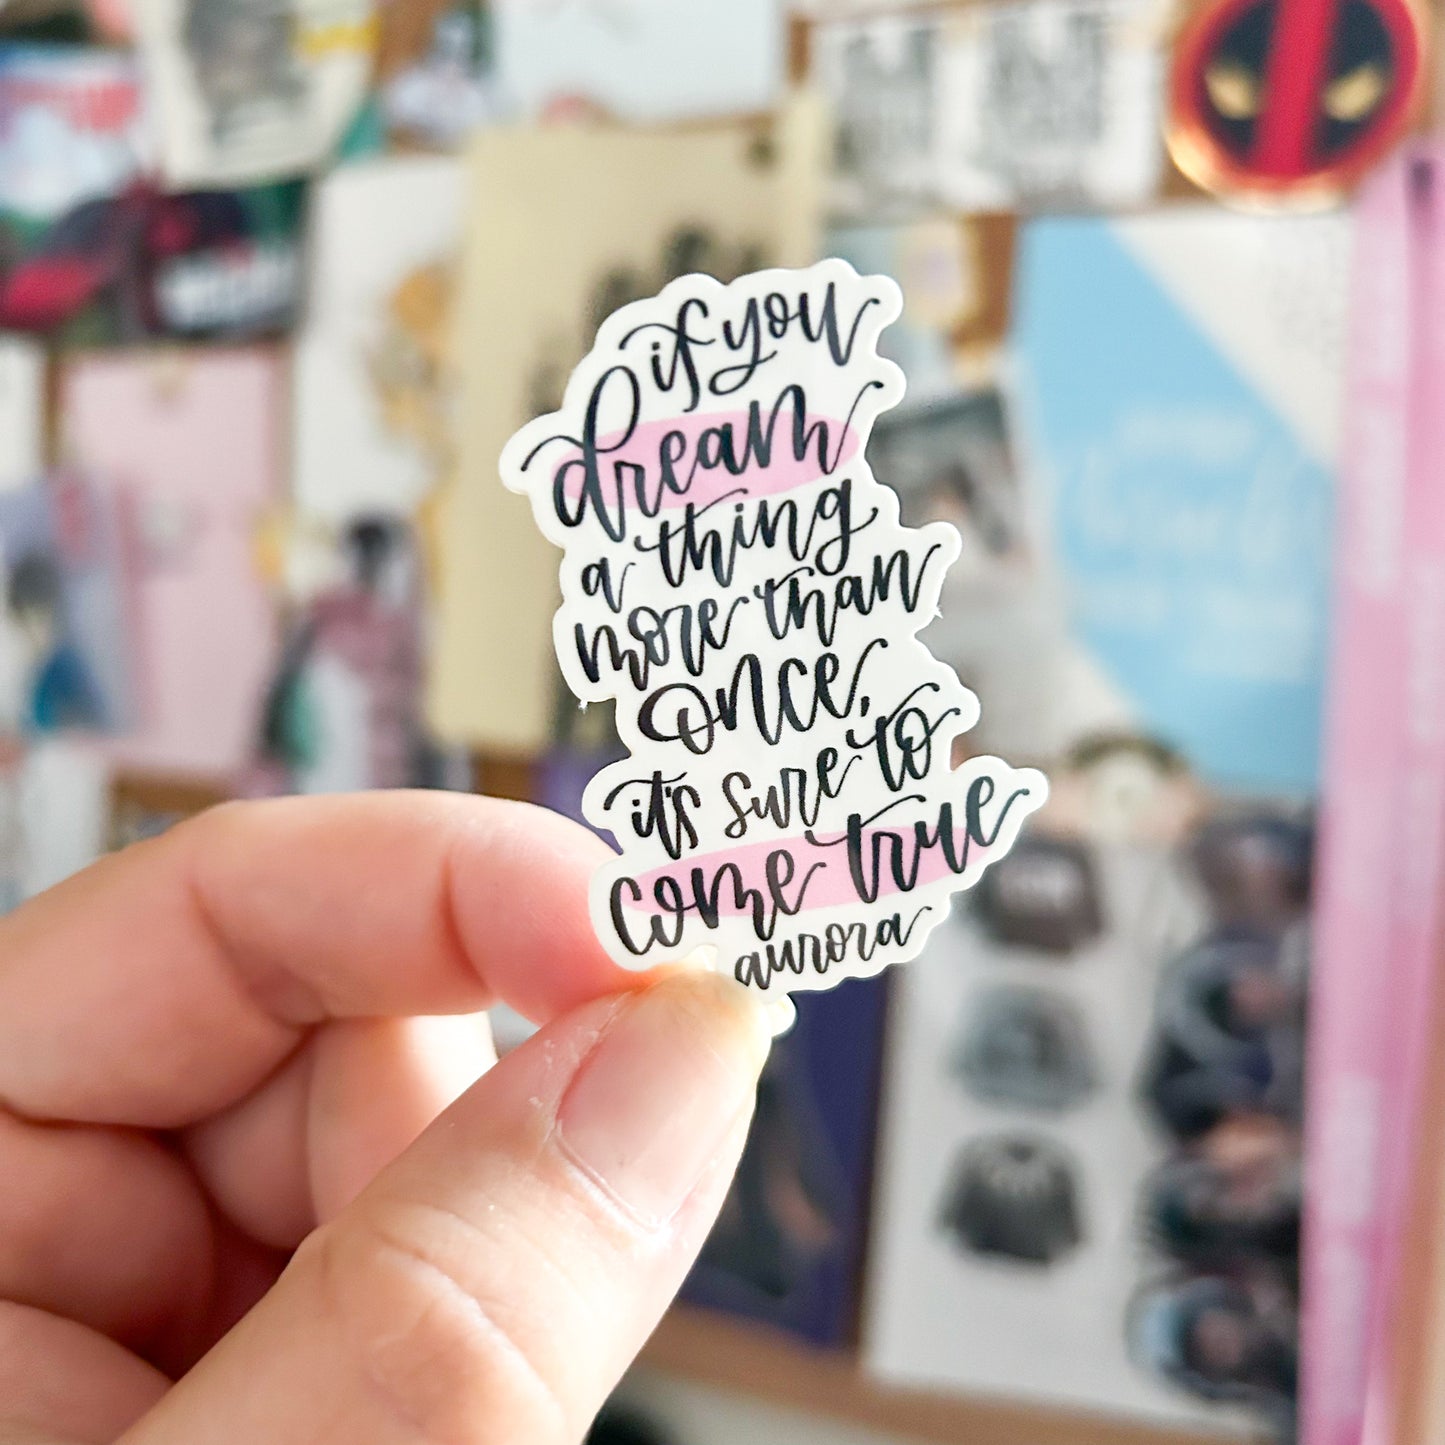 if you
dream
a thing
more than
once,
it's sure to
come true
aurora